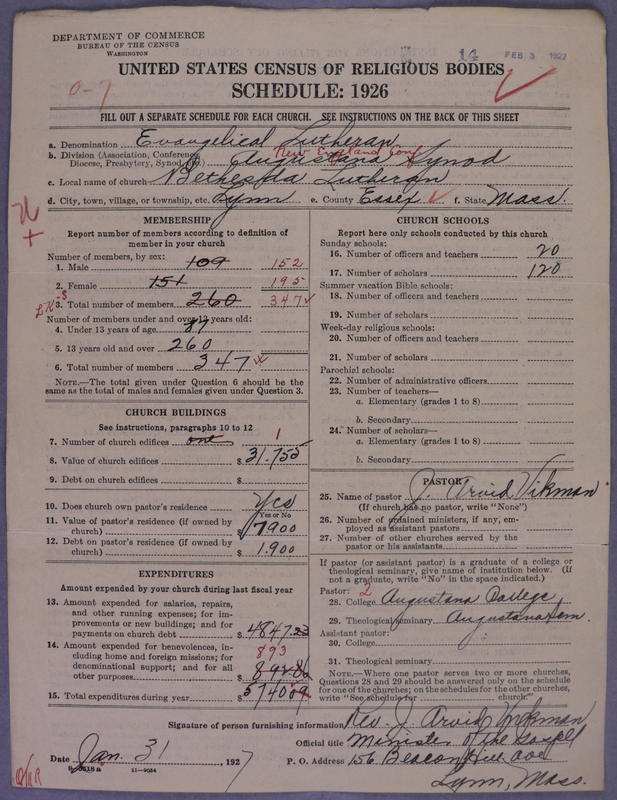 DEPARTMENT OF COMMERCE
BUREAU OF THE CENSUS
WASHINGTON
14 FEB 3 1927
UNITED STATES CENSUS OF RELIGIOUS BODIES
SCHEDULE: 1926
0-7
FILL OUT A SEPARATE SCHEDULE FOR EACH CHURCH. SEE INSTRUCTIONS ON THE BACK OF THIS SHEET
a. Denomination Evangelical Lutheran
b. Division (Association, Conference, Diocese, Presbytery, Synod, etc.) Augustana Synod New England Conf
c. Local name of church Bethesda Lutheran
d. City, town, village, or township, etc. Lynn e. County Essex f. State Mass.
MEMBERSHIP
Report number of members according to definition of
member in your church
Number of members, by sex:
1. Male 109 152
2. Female 151 195
3. Total number of members 260 347
Number of members under and over 13 years old:
4. Under 13 years of age 87
5. 13 years old and over 260
6. Total number of members 347
NOTE.—The total given under Question 6 should be the
same as the total of males and females given under Question 3.
CHURCH BUILDINGS
See instructions, paragraphs 10 to 12
7. Number of church edifices one 1
8. Value of church edifices $ 31.755
9. Debt on church edifices $
10. Does church own pastor's residence Yes
Yes or No
11. Value of pastor's residence (if owned by
church) $ 7900
12. Debt on pastor's residence (if owned by
church) $ 1.900
EXPENDITURES
Amount expended by your church during last fiscal year
13. Amount expended for salaries, repairs,
and other running expenses; for im-
provements or new buildings; and for
payments on church debt $ 4847.23
14. Amount expended for benevolences, in-
cluding home and foreign missions; for
denominational support; and for all
other purposes $ 892.86 893
15. Total expenditures during year $ 5740.09
CHURCH SCHOOLS
Report here only schools conducted by this church
Sunday schools:
16. Number of officers and teachers 20
17. Number of scholars 120
Summer vacation Bible schools:
18. Number of officers and teachers
19. Number of scholars
Week-day religious schools:
20. Number of officers and teachers
21. Number of scholars
Parochial schools:
22. Number of administrative officers
23. Number of teachers—
a. Elementary (grades 1 to 8)
b. Secondary
24. Number of scholars—
a. Elementary (grades 1 to 8)
b. Secondary
PASTOR
25. Name of pastor J. Arvid Vikman
(If church has no pastor, write "None")
26. Number of ordained ministers, if any, em-
ployed as assistant pastors
27. Number of other churches served by the
pastor or his assistants
If pastor (or assistant pastor) is a graduate of a college or
theological seminary, give name of institution below. (If
not a graduate, write "No" in the space indicated.)
Pastor: 2
28. College Augustana College
29. Theological seminary Augustana Sem.
Assistant pastor:
30. College
31. Theological seminary
NOTE.—Where one pastor serves two or more churches,
Questions 28 and 29 should be answered only on the schedule
for one of the churches; on the schedules for the other churches,
write "See schedule for church."
Signature of person furnishing information Rev. J. Arvid Vikman
Official title Minister of the Gospel
Date Jan. 31, 1927 P. O. Address 156 Beacon Hill Ave
8-5518 a 11-9034 Lynn, Mass.